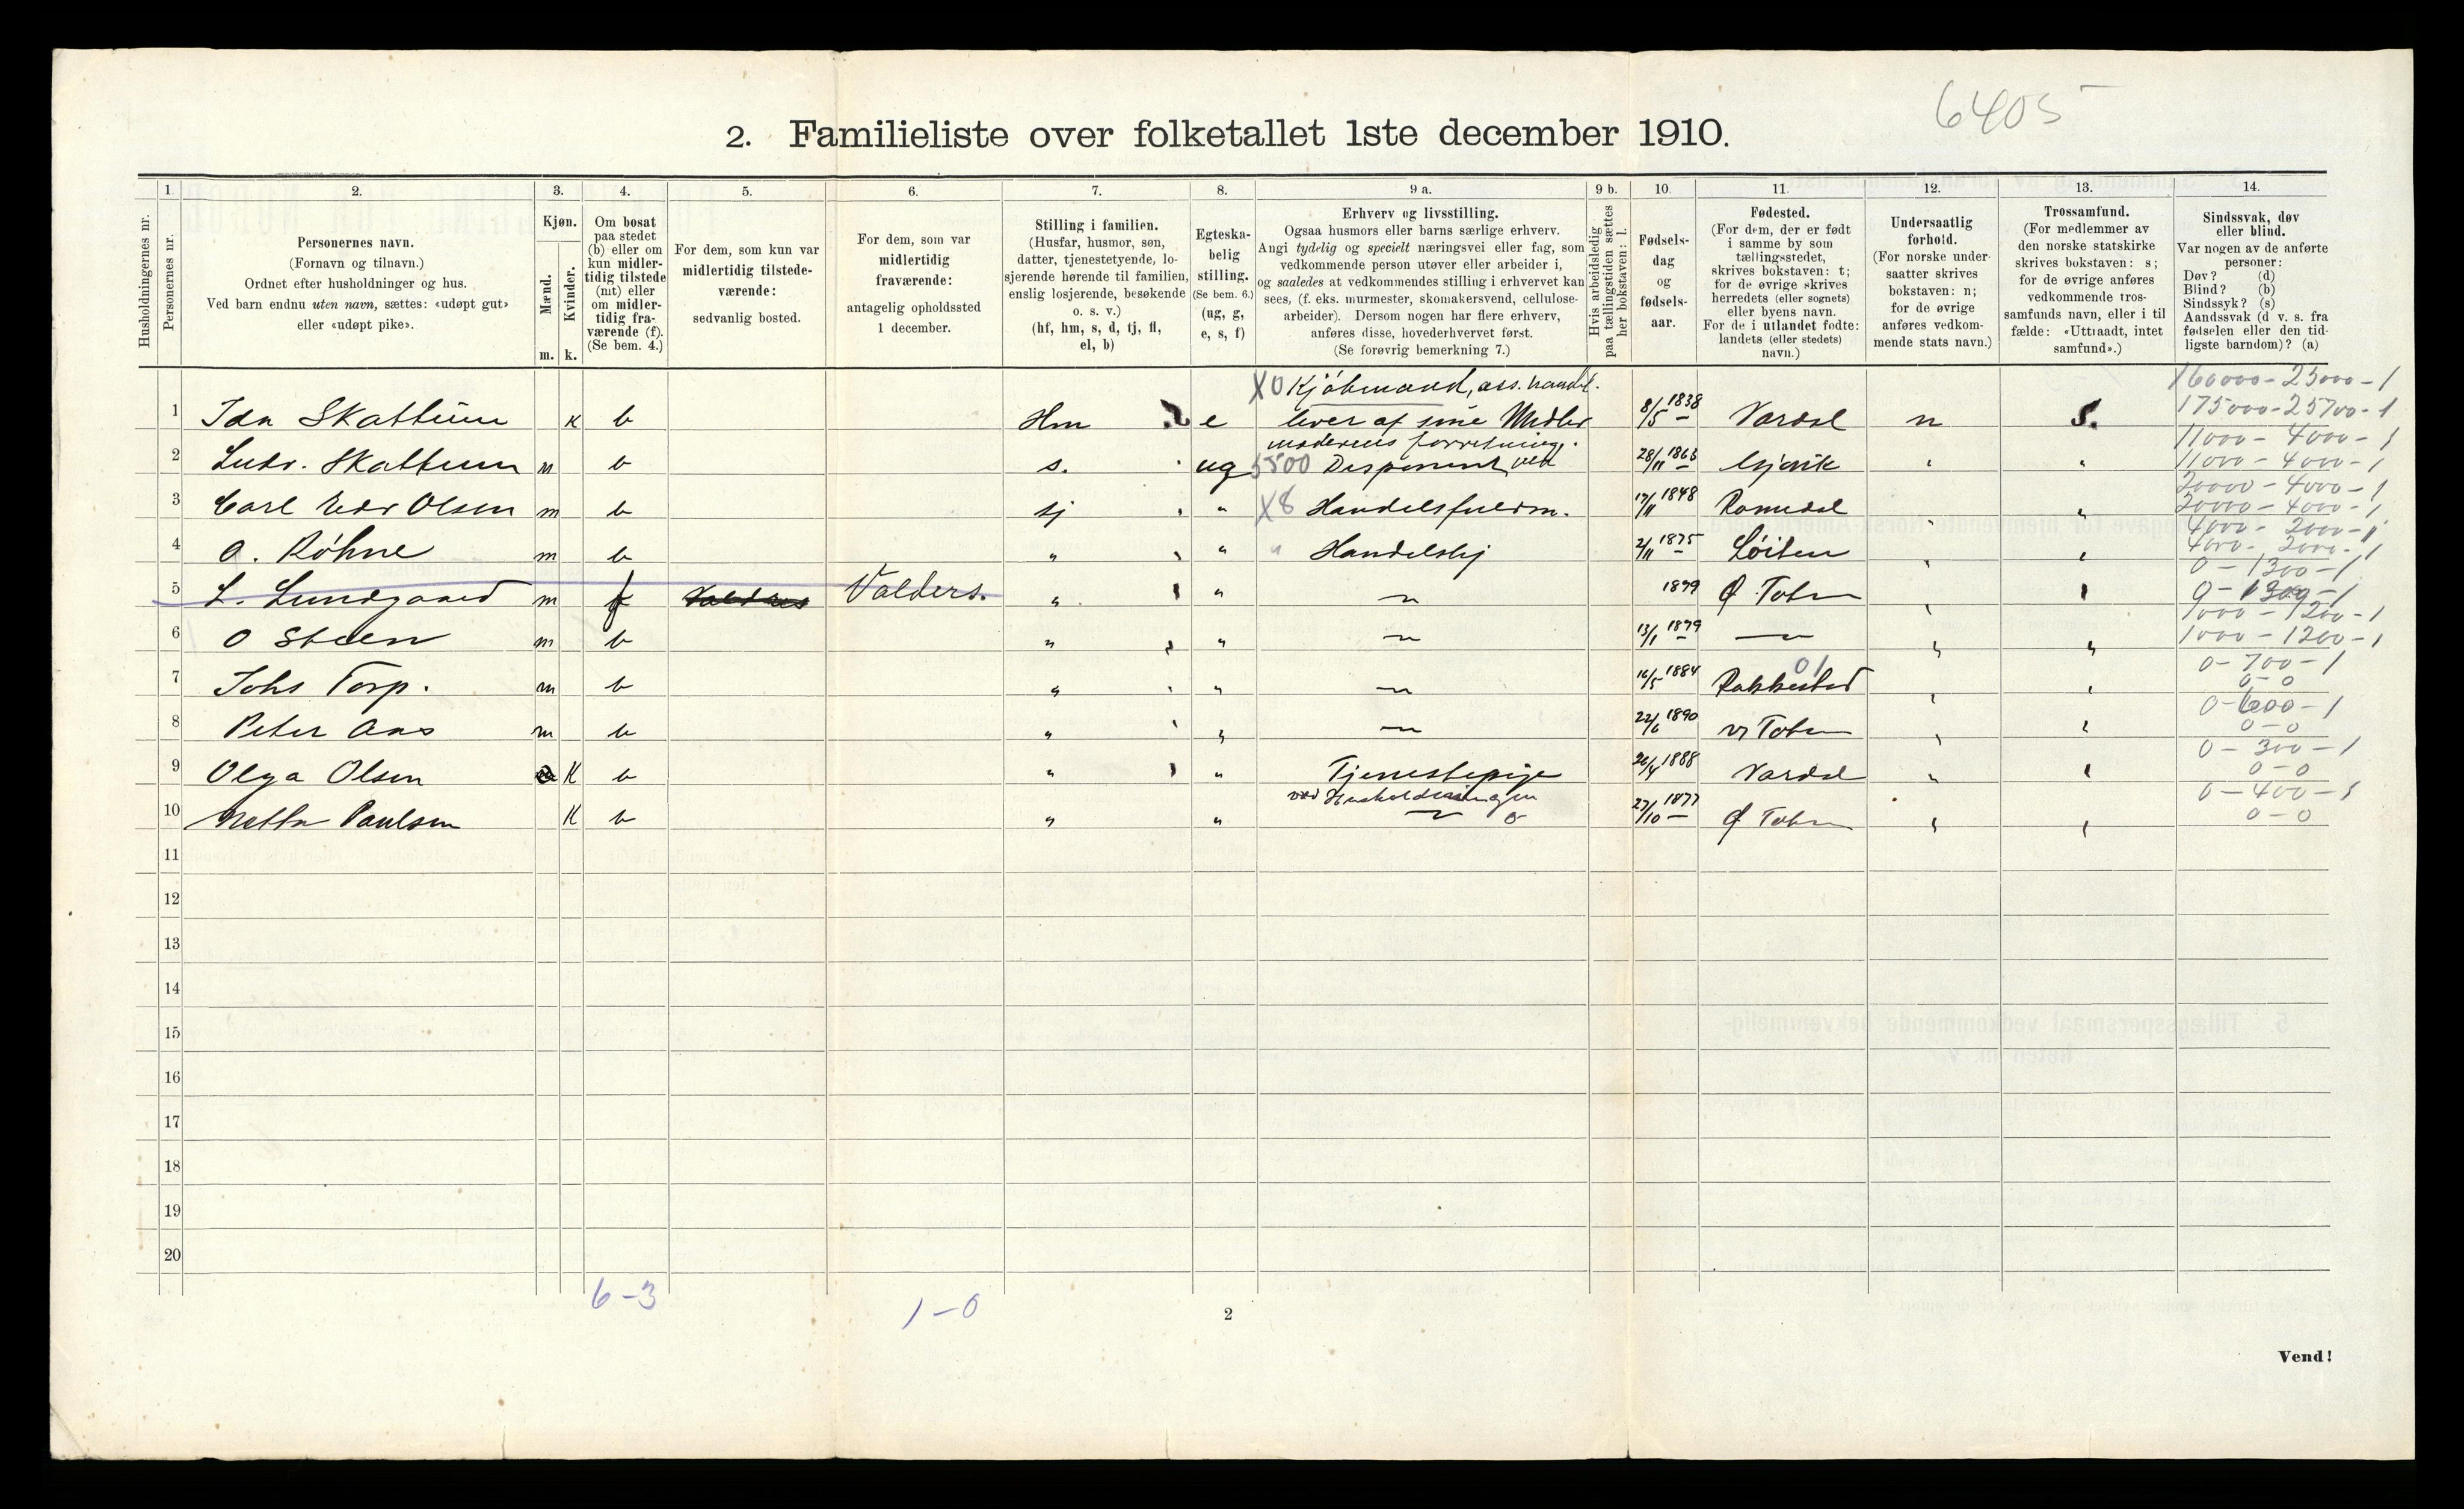 6405
2. Familieliste over folketallet 1ste december 1910.
Husholdningernes nr.
1. Personernes nr.
2. Personernes navn. (Fornavn og tilnavn.) Ordnet efter husholdninger og hus. Ved barn endnu uten navn, sættes: «udøpt gut» eller «udøpt pike».
3. Kjøn. Mænd. m. Kvinder. k.
4. Om bosat paa stedet (b) eller om kun midlertidig tilstede (mt) eller om midlertidig fraværende (f). (Se bem. 4.)
5. For dem, som kun var midlertidig tilstedeværende: sedvanlig bosted.
6. For dem, som var midlertidig fraværende: antagelig opholdssted 1 december.
7. Stilling i familien. (Husfar, husmor, søn, datter, tjenestetyende, losjerende hørende til familien, enslig losjerende, besøkende o. s. v.) (hf, hm, s, d, tj, fl, el, b)
8. Egteskabelig stilling. (Se bem. 6.) (ug, g, e, s, f)
9 a. Erhverv og livsstilling. Ogsaa husmors eller barns særlige erhverv. Angi tydelig og specielt næringsvei eller fag, som vedkommende person utøver eller arbeider i, og saaledes at vedkommendes stilling i erhvervet kan sees, (f. eks. murmester, skomakersvend, cellulosearbeider). Dersom nogen har flere erhverv, anføres disse, hovederhvervet først. (Se forøvrig bemerkning 7.)
9 b. Hvis arbeidsledig paa tællingstiden sættes her bokstaven: l.
10. Fødselsdag og fødselsaar.
11. Fødested. (For dem, der er født i samme by som tællingsstedet, skrives bokstaven: t; for de øvrige skrives herredets (eller sognets) eller byens navn. For de i utlandet fødte: landets (eller stedets) navn.)
12. Undersaatlig forhold. (For norske undersaatter skrives bokstaven: n; for de øvrige anføres vedkommende stats navn.)
13. Trossamfund. (For medlemmer av den norske statskirke skrives bokstaven: s; for de øvrige anføres vedkommende trossamfunds navn, eller i tilfælde: «Uttraadt, intet samfund».)
14. Sindssvak, døv eller blind. Var nogen av de anførte personer: Døv? (d) Blind? (b) Sindssyk? (s) Aandssvak (d. v. s. fra fødselen eller den tidligste barndom)? (a)
X0 Kjöbmand, ass. handel. 160000 - 25000 - 1
1 Ida Skattum k b Hm e lever af sine Midler 8/5 1838 Vardal n S. 175000 - 25700 - 1
moderens forretning. 11000 - 4000 - 1
2 Ludv. Skattum m b s. ug 5500 Disponent ved 28/11 1863 Gjøvik " " 11000 - 4000 - 1
20000 - 4000 - 1
3 Carl Edv Olsen m b tj " X8 Handelsfuldm. 17/11 1848 Romedal " " 20000 - 4000 - 1
4000 - 2000 - 1
4 O. Röhne m b " " " Handelsbtj 2/11 1875 Löiten " " 4000 - 2000 - 1
0 - 1300 - 1
5 L. Lundgaard m f Valders. " " — 1879 Ø. Toten " " 0 - 1300 - 1
1000 - 1200 - 1
6 O Steen m b " " — 13/1 1879 — " " 1000 - 1200 - 1
01 0 - 700 - 1
7 Johs Torp. m b " " — 16/5 1884 Rakkestad " " 0 - 0
0 - 600 - 1
8 Peter Aas m b " " — 22/6 1890 V Toten " " 0 - 0
0 - 300 - 1
9 Olga Olsen K b " " Tjenestepige 20/4 1888 Vardal " " 0 - 0
ved Husholdningen 0 - 400 - 1
10 Netta Paulsen K b " " — o 27/10 1877 Ø Toten " " 0 - 0
11
12
13
14
15
16
17
18
19
20
6 - 3
1 - 0
2
Vend!